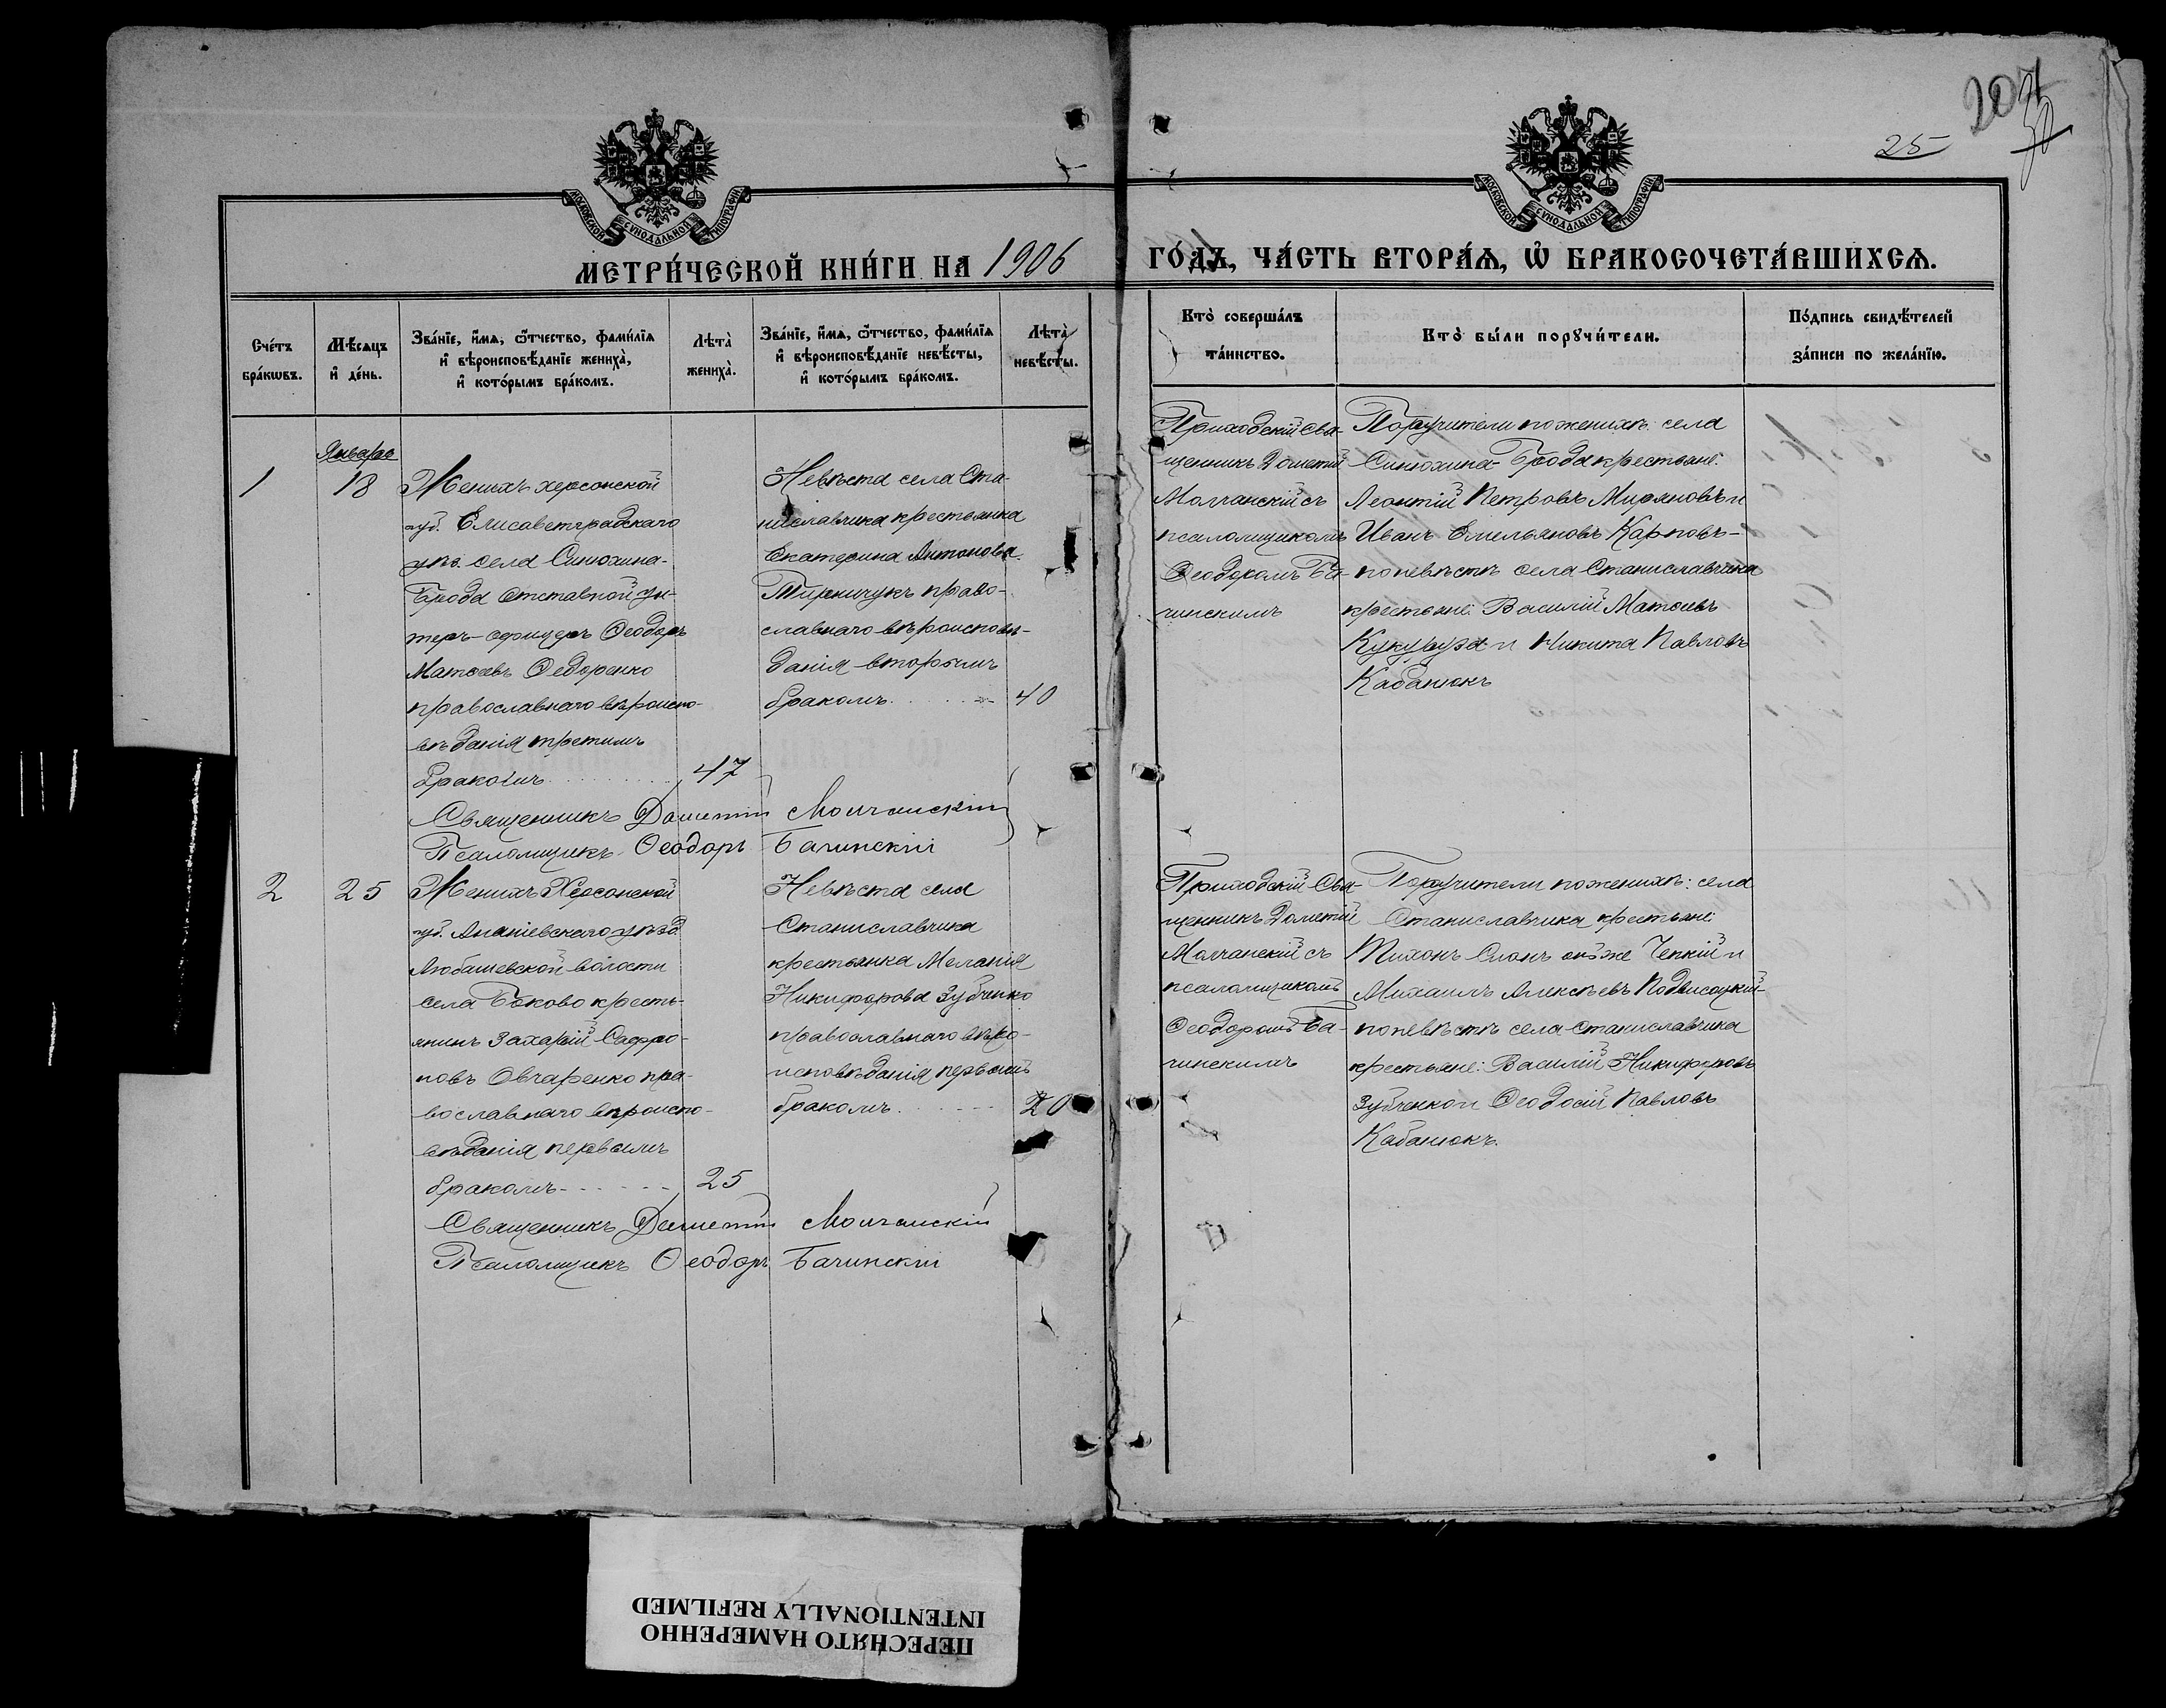 207
25
МОСКОВСКОЙ СѴНОДАЛЬНОЙ ТИПОГРАФІИ
МОСКОВСКОЙ СѴНОДАЛЬНОЙ ТИПОГРАФІИ
МЕТРИ́ЧЕСКОЙ КНИ́ГИ НА 1906
ГО́ДЪ, ЧА́СТЬ ВТОРА́Ѧ, Ѽ БРАКОСОЧЕТА́ВШИХСѦ.
Сче́тъ
бра́кѡвъ.
Мѣ́сяцъ
и҆ де́нь.
Зва́нїе, и҆́мѧ, ѻ҆́тчество, фами́лїѧ
и҆ вѣроисповѣ́данїе жениха̀,
и҆ кото́рымъ бра́комъ.
Лѣта̀
жениха̀.
Зва́нїе, и҆́мѧ, ѻ҆́тчество, фами́лїѧ
и҆ вѣроисповѣ́данїе невѣ́сты,
и҆ кото́рымъ бра́комъ.
Лѣта̀
невѣ́сты.
Кто̀ соверша́лъ
та́инство.
Кто̀ бы́ли порꙋчи́тели.
По́дпись свидѣ́телей
за́писи по жела́нїю.
Января
1
18
Женихъ херсонской
губ. Елисаветградскаго
уѣз. села Синюхина-
Брода отставной ун-
теръ-офицеръ Ѳеодоръ
Матѳевъ Ѳедоренко
православнаго вѣроиспо-
вѣданія третимъ
бракомъ 47
Невѣста села Ста-
ниславчика крестьянка
Екатерина Антонова
Тирничукъ право-
славнаго вѣроисповѣ-
данія вторымъ
бракомъ 40
Приходскій Свя-
щенникъ Дометій
Молчанскій съ
псаломщикомъ
Ѳеодоромъ Ба-
чинскимъ
Поручители по женихѣ: села
Синюхина-Брода крестьяне:
Леонтій Петровъ Мироновъ и
Иванъ Емельяновъ Карповъ-
по невѣстѣ села Станиславчика
крестьяне: Василій Матѳевъ
Кукуруза и Никита Павловъ
Кабанюкъ
Священникъ Дометій Молчанскій
Псаломщикъ Ѳеодоръ Бачинскій
2
25
Женихъ Херсонской
губ. Ананіевскаго уѣзд.
Любашевской волости
села Боково кресть-
янинъ Захарій Сафро-
новъ Овчаренко пра-
вославнаго вѣроиспо-
вѣданія первымъ
бракомъ 25
Невѣста села
Станиславчика
крестьянка Меланія
Никифорова Зубченко
православнаго вѣро-
исповѣданія первымъ
бракомъ 20
Приходскій Свя-
щенникъ Дометій
Молчанскій съ
псаломщикомъ
Ѳеодоромъ Ба-
чинскимъ
Поручители по женихѣ: села
Станиславчика крестьяне:
Тихонъ Слонъ онъ же Чепкій и
Михаилъ Алексѣевъ Подвисоцкій-
по невѣстѣ села Станиславчика
крестьяне: Василій Никифоровъ
Зубченко и Ѳеодосій Павловъ
Кабанюкъ.
Священникъ Дометій Молчанскій
Псаломщикъ Ѳеодоръ Бачинскій
ПЕРЕСНЯТО НАМЕРЕННО
INTENTIONALLY REFILMED